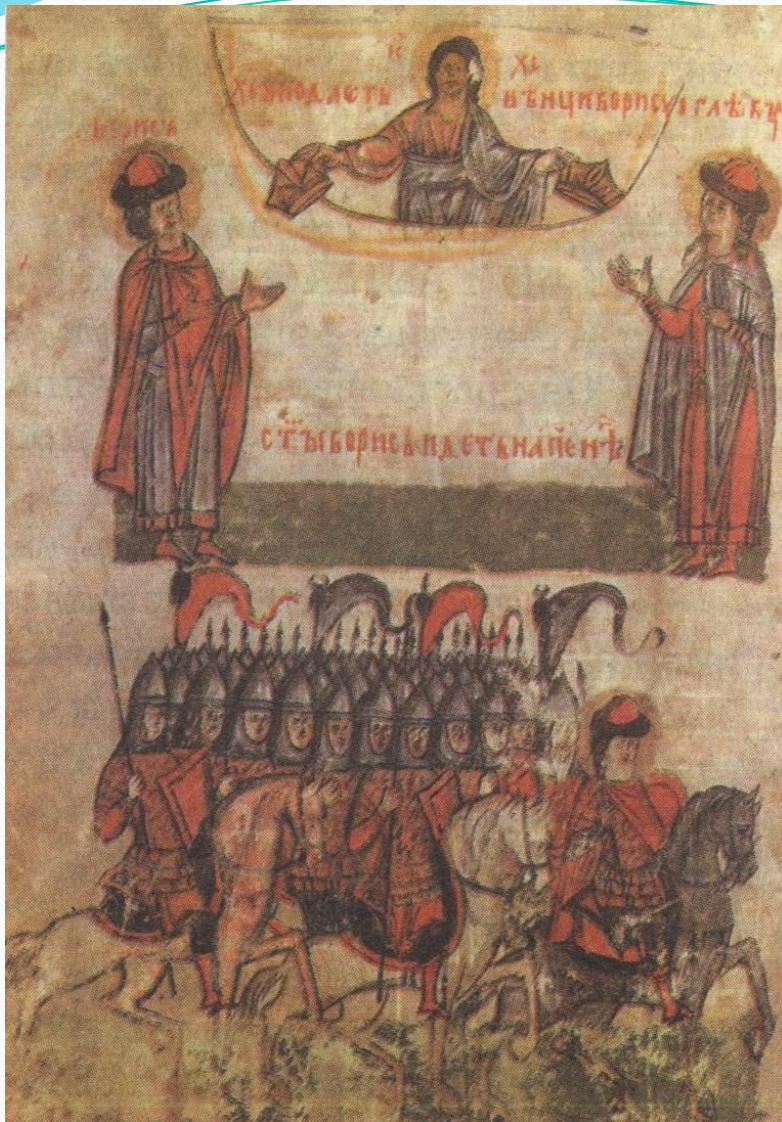 і҃с х҃с
х҃ъ подаеть вѣнци борису и глѣбу
борисъ
ст҃ыи борисъ идеть на печенѣ